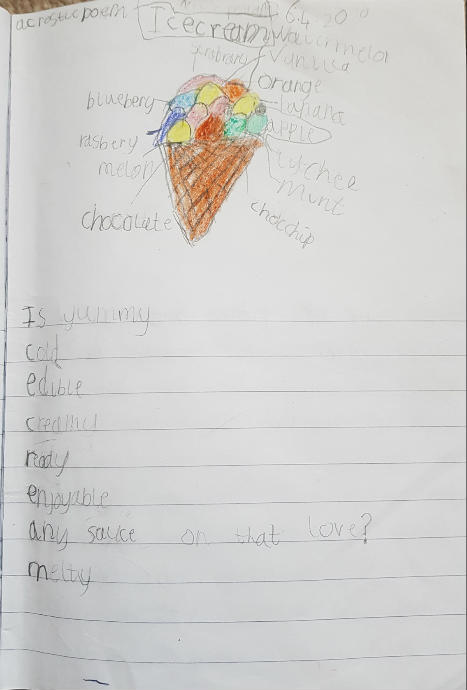 acrostic poem
Icecream
6.4.20
Watermelon
Vanilla
orange
blueberry
banana
apple
rasbery
lychee
melon
mint
chocolate
chokchip
Is yummy
cold
edible
creamy
ready
enjoyable
any sauce on that love?
melty